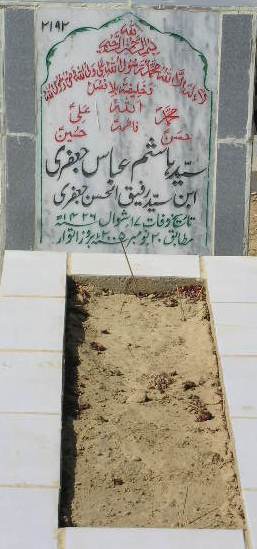 ۲۱۹۲
اللہ
بسم اللہ الرحمن الرحیم
لا الہ الا اللہ محمد رسول اللہ علی ولی اللہ وصی رسول اللہ
وخلیفتہ بلا فصل
اللہ
محمدؐ فاطمہؑ علیؑ
حسنؑ حسینؑ
سید ہاشم عباس جعفری
ابن سید رفیق الحسن جعفری
تاریخ وفات ۱۷ شوال ۱۴۲۶ھ
مطابق ۲۰ نومبر ۲۰۰۵ء بروز اتوار